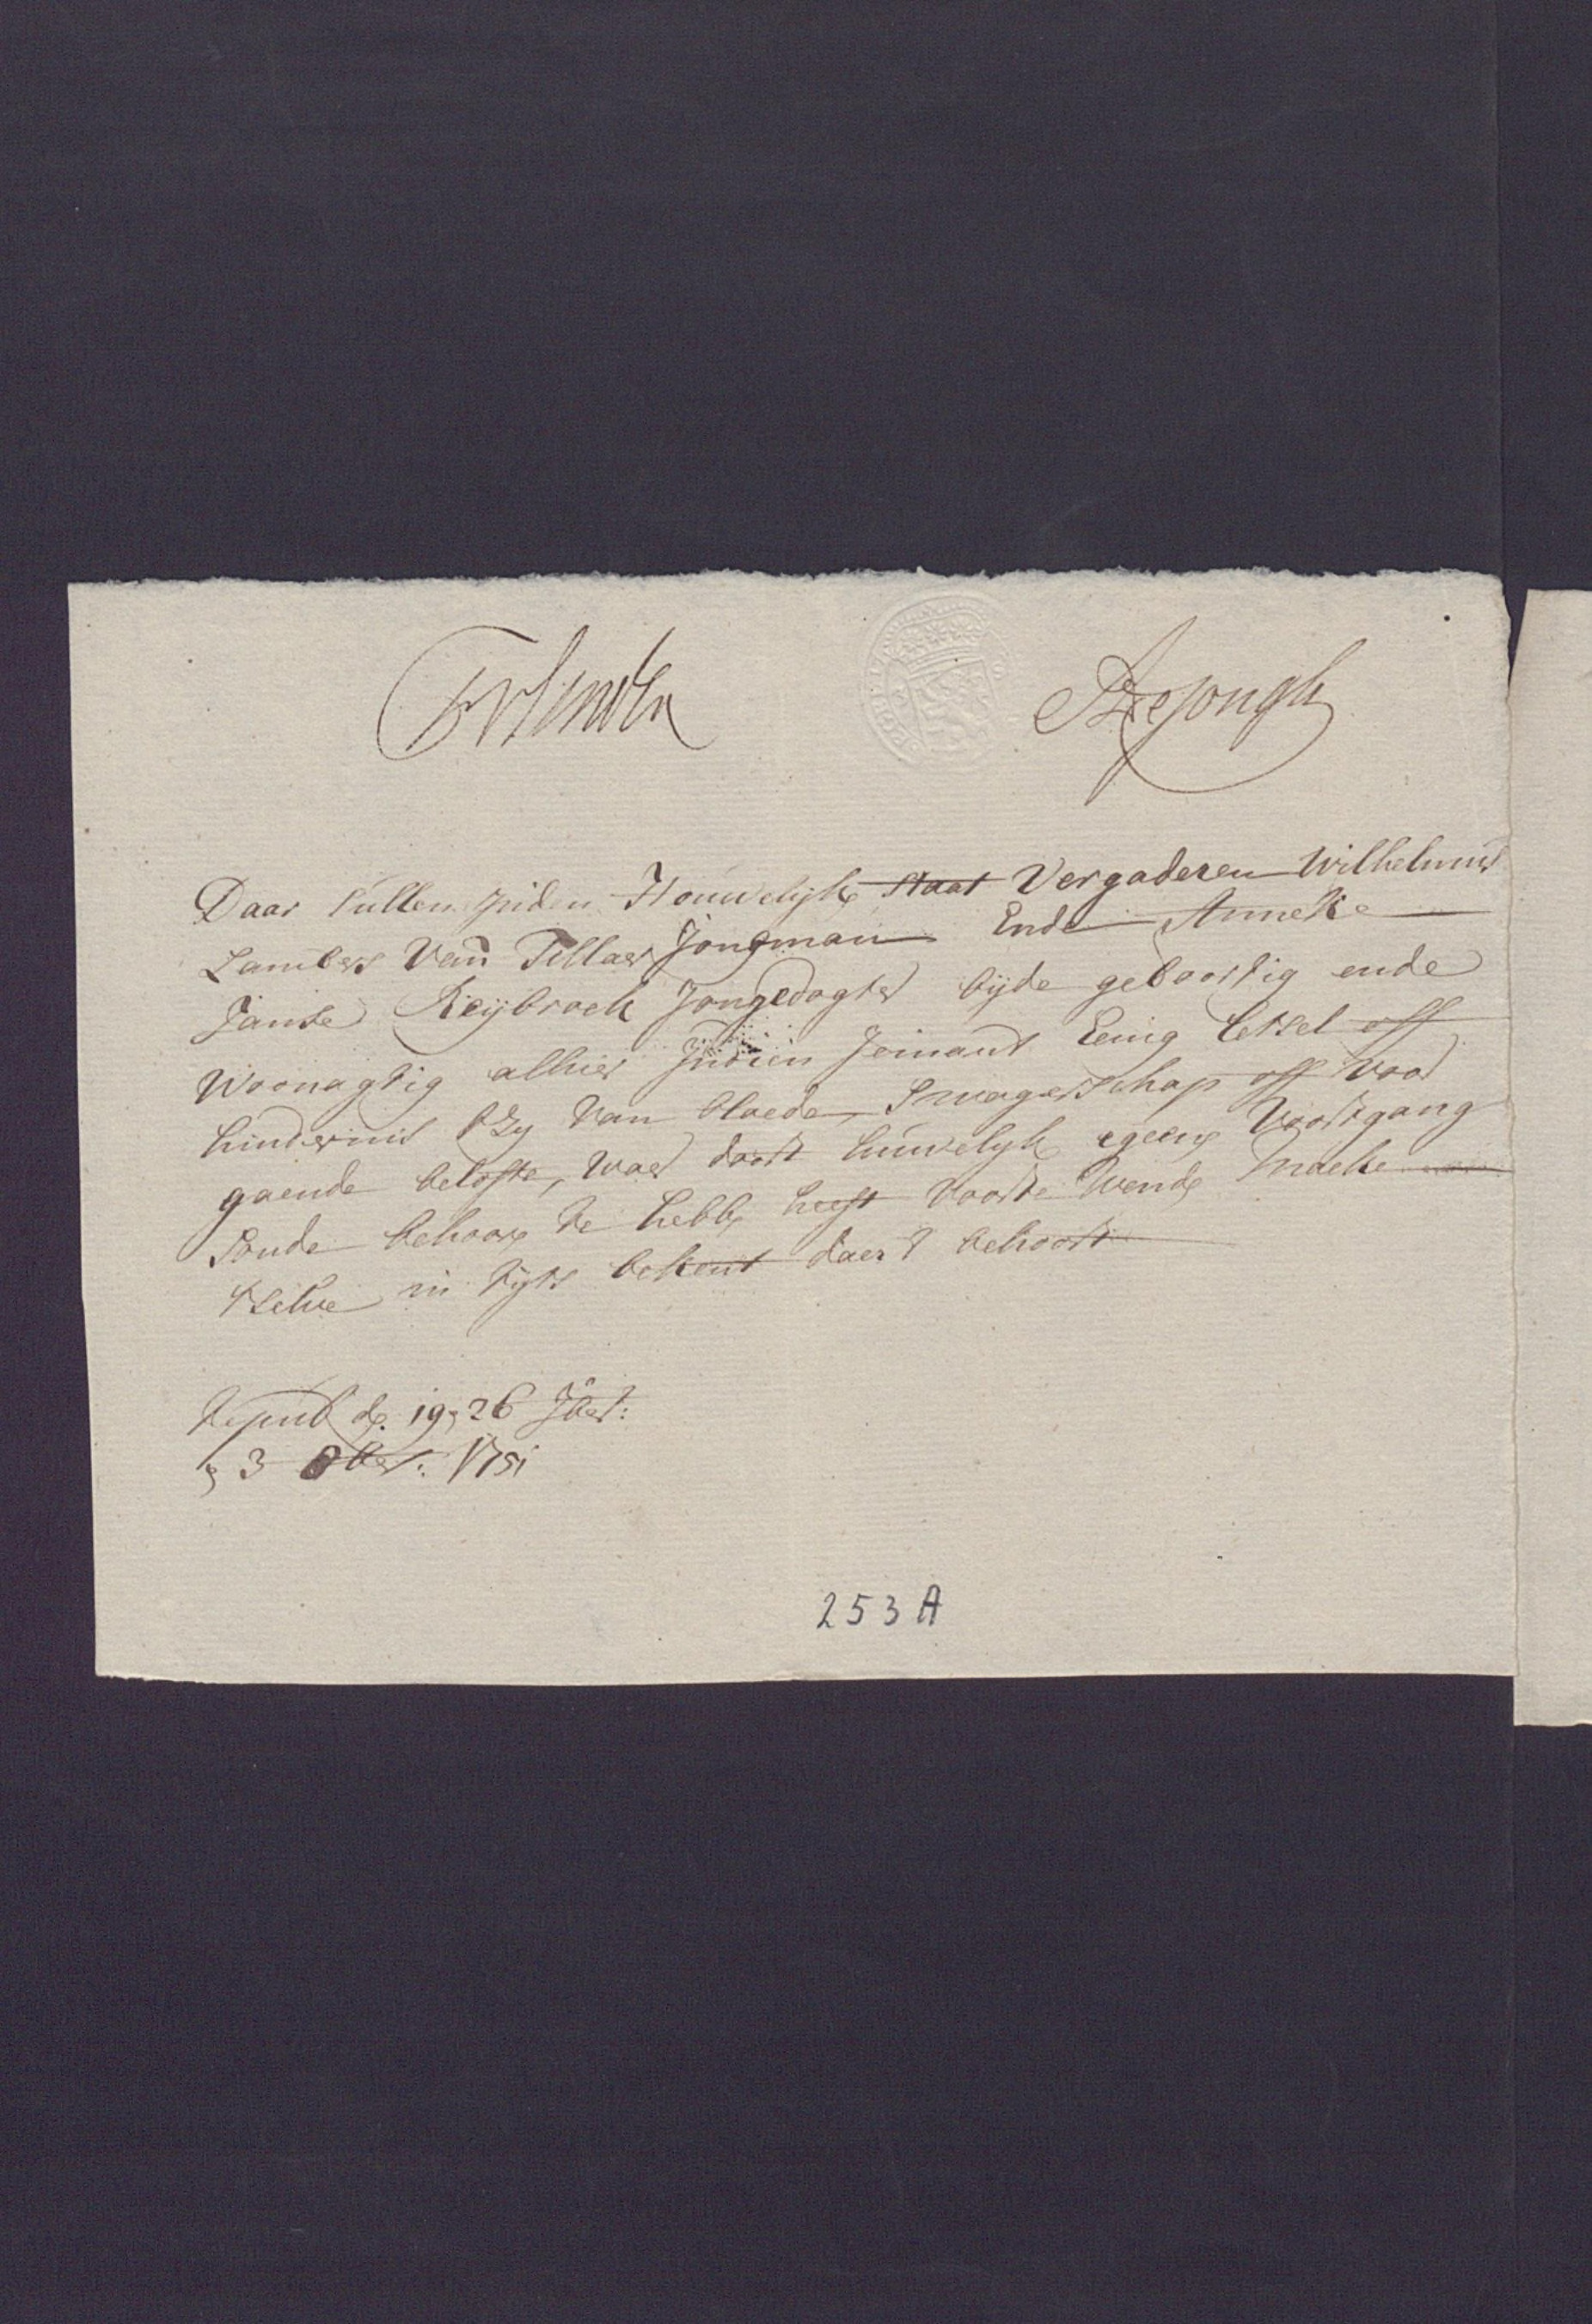 Dejongh
Daar sullen zig in den Houwelijke staat Vergaderen Wilhelmus
Lambers Van Tillaer Jongman Ende Anneke
Janse Reijbroek Jongedogter byde geboortig ende
Woonagtig alhier Indien Jemant Eenig letsel off
hindernis tzy Van bloede, Swagerschap off Voor
gaende belofte, waer doort huwelyk egeene Voortgang
Soude behoore te hebbe heeft Voorte Wende maeke
tselve in tyts bekent daer t behoort
de 19, 26 7ber:
3 8ber: 1751
253 A